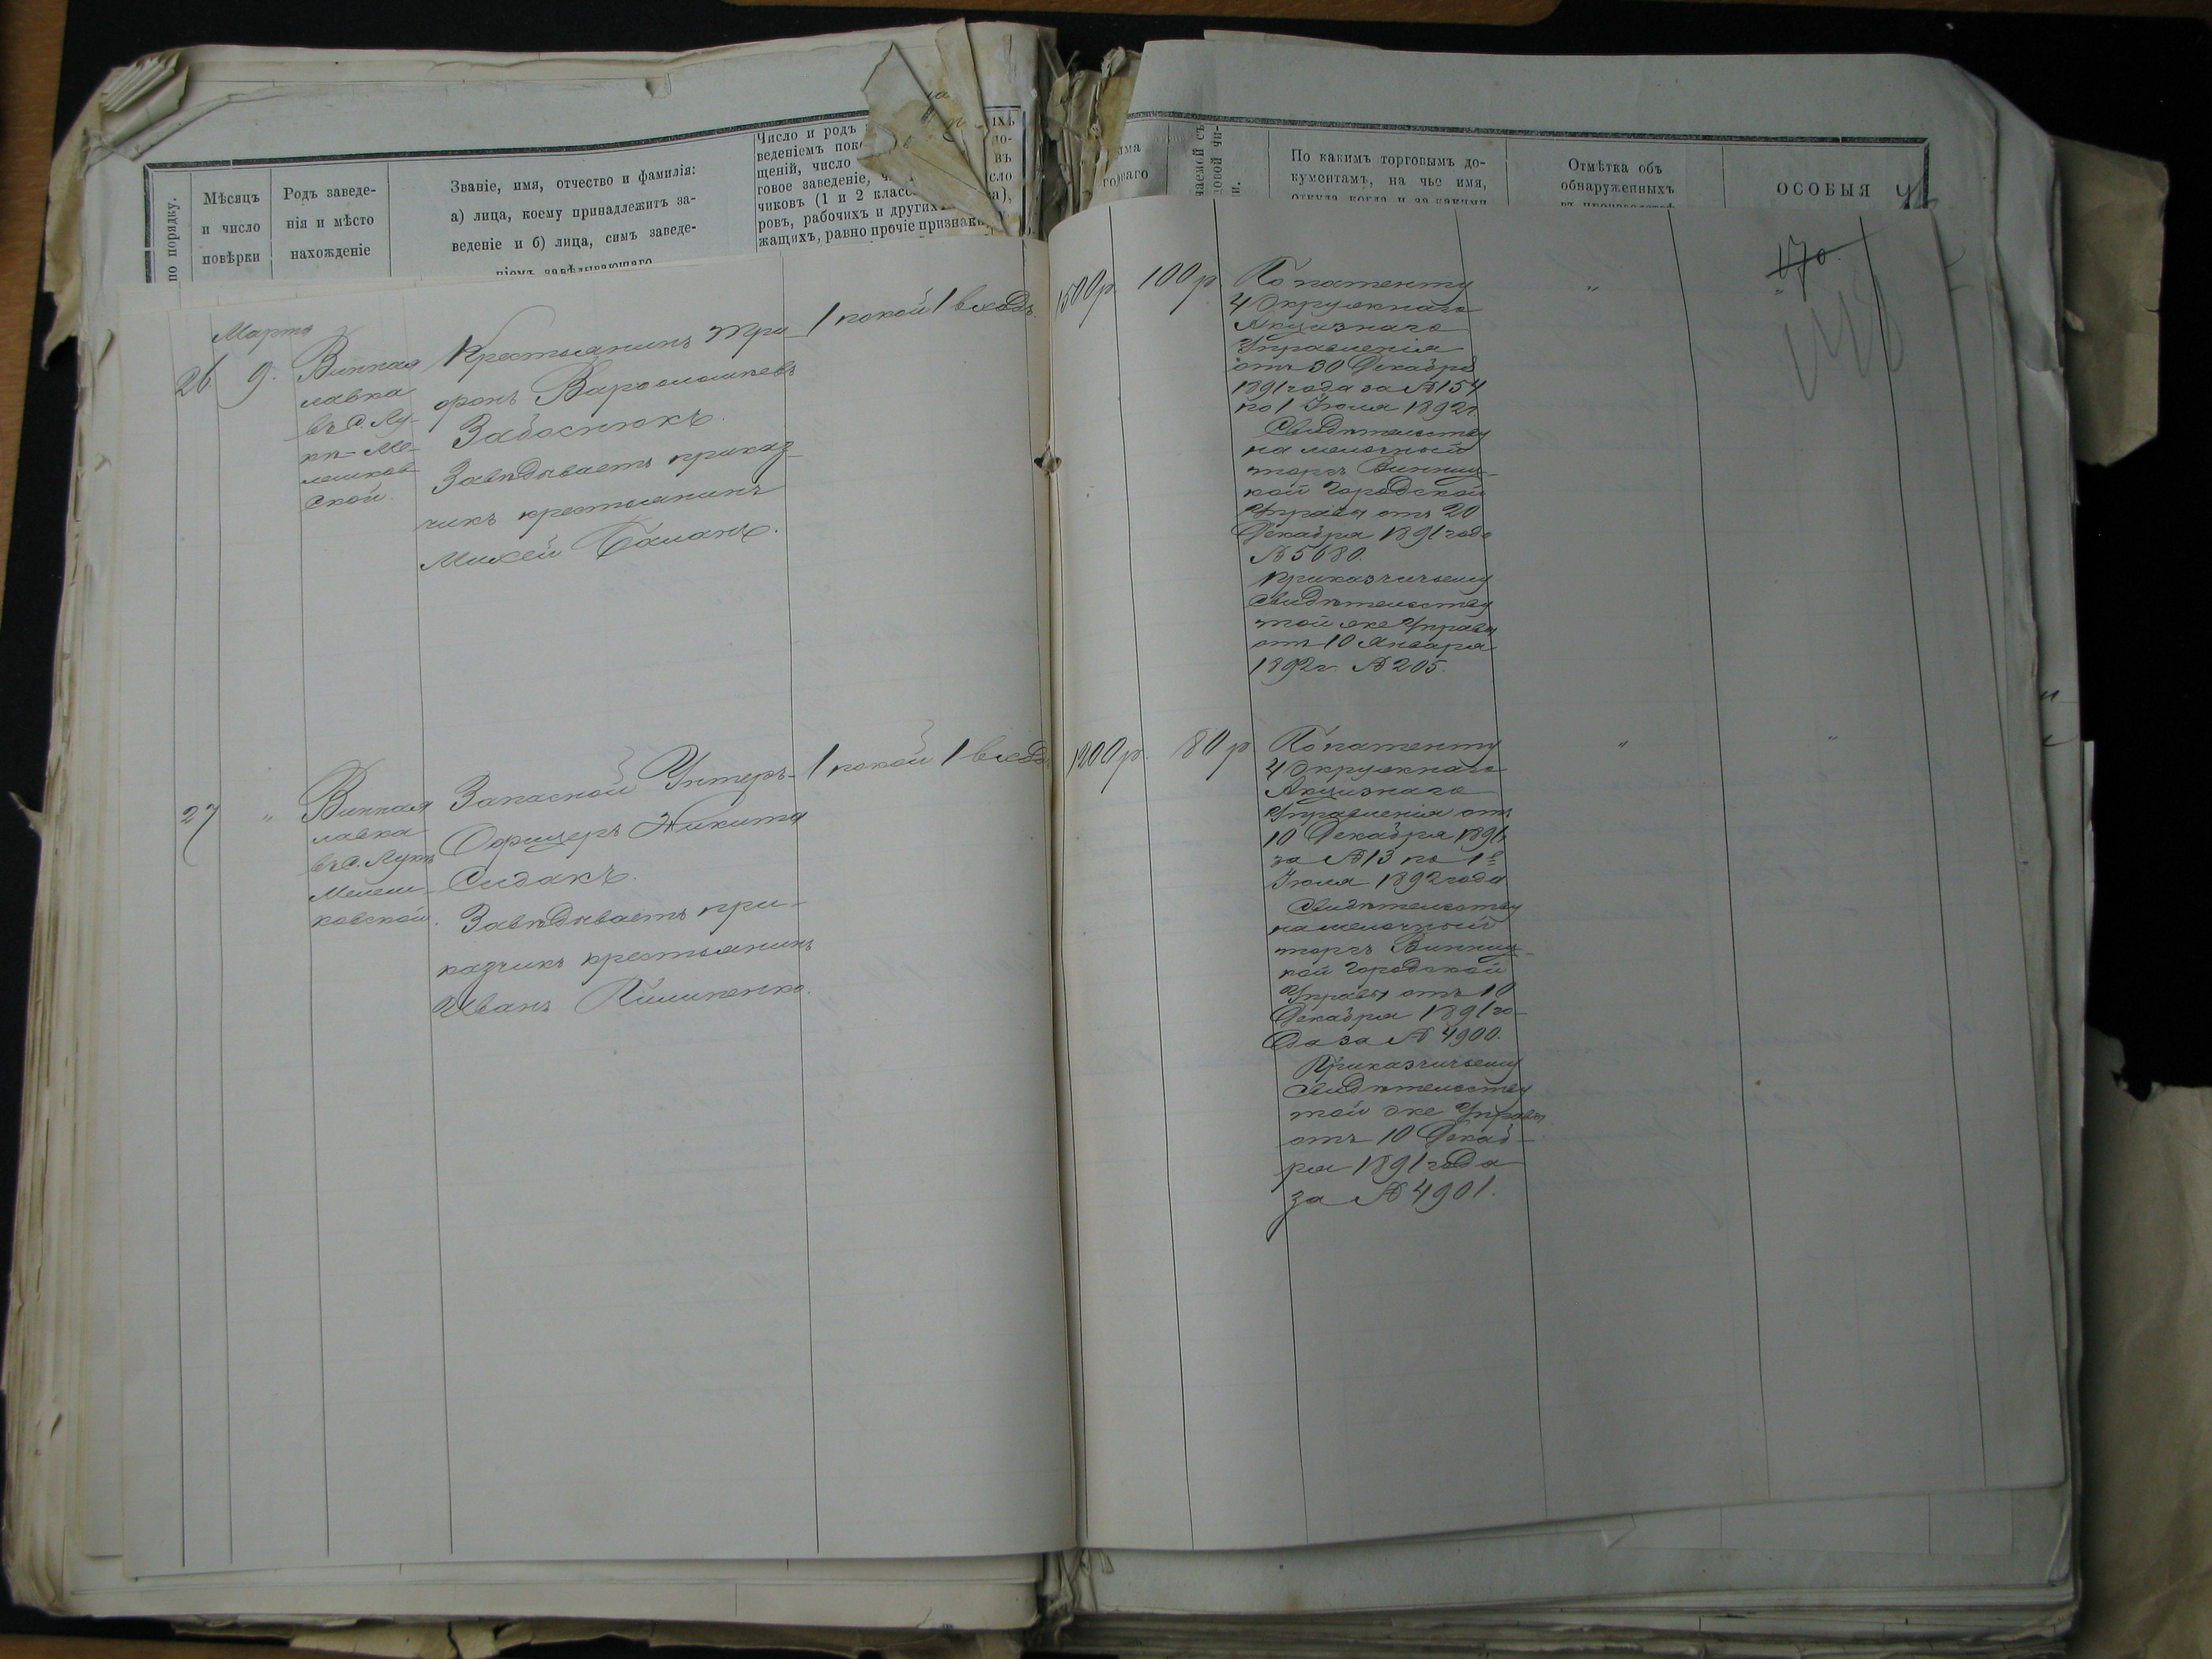 по порядку.
Мѣсяцъ
и число
повѣрки
Родъ заведе-
нія и мѣсто
нахожденіе
Званіе, имя, отчество и фамилія:
а) лица, коему принадлежитъ за-
веденіе и б) лица, симъ заведе-
ніемъ завѣдывающаго
Число и родъ
веденіемъ
щеній, число
говое заведеніе,
чиковъ (1 и 2
ровъ, рабочихъ и другихъ
жащихъ, равно прочіе признаки
По какимъ торговымъ до-
кументамъ, на чье имя,
откуда, когда и за какими
Отмѣтка объ
обнаруженныхъ
въ производствѣ
ОСОБЫЯ
Марта
26. 9.
Винная
лавка
въ с. Лу-
кѣ-Ме-
лешков-
ской.
Крестьянинъ Три-
фонъ Варфоломеевъ
Забоснюкъ.
Завѣдываетъ приказ-
чикъ крестьянинъ
Михей Баланъ.
1 покой 1 входъ.
1500 р.
100 р.
По патенту
4 Окружнаго
Акцизнаго
Управленія
отъ 30 Декабря
1891 года за № 154
по 1 Іюля 1892 г.
Свидѣтельству
на мелочный
торгъ Винниц-
кой Городской
Управы отъ 20
Декабря 1891 года
№ 5680.
Приказчичьему
свидѣтельству
той же Управы
отъ 10 Января
1892 г. № 205.
"
170.
"
27 "
Винная
лавка
въ с. Лукѣ
Мелеш-
ковской.
Запасной Унтеръ-
Офицеръ Никита
Сидакъ.
Завѣдываетъ при-
казчикъ крестьянинъ
Иванъ Пилипенко.
1 покой 1 входъ
1200 р.
80 р.
По патенту
4 Окружнаго
Акцизнаго
Управленія отъ
10 Декабря 1891 г.
за № 13 по 1е
Іюля 1892 года
Свидѣтельству
на мелочный
торгъ Винниц-
кой Городской
Управы отъ 10
Декабря 1891 го-
да за № 4900.
Приказчичьему
свидѣтельству
той же Управы
отъ 10 Декаб-
ря 1891 года
за № 4901.
"
"